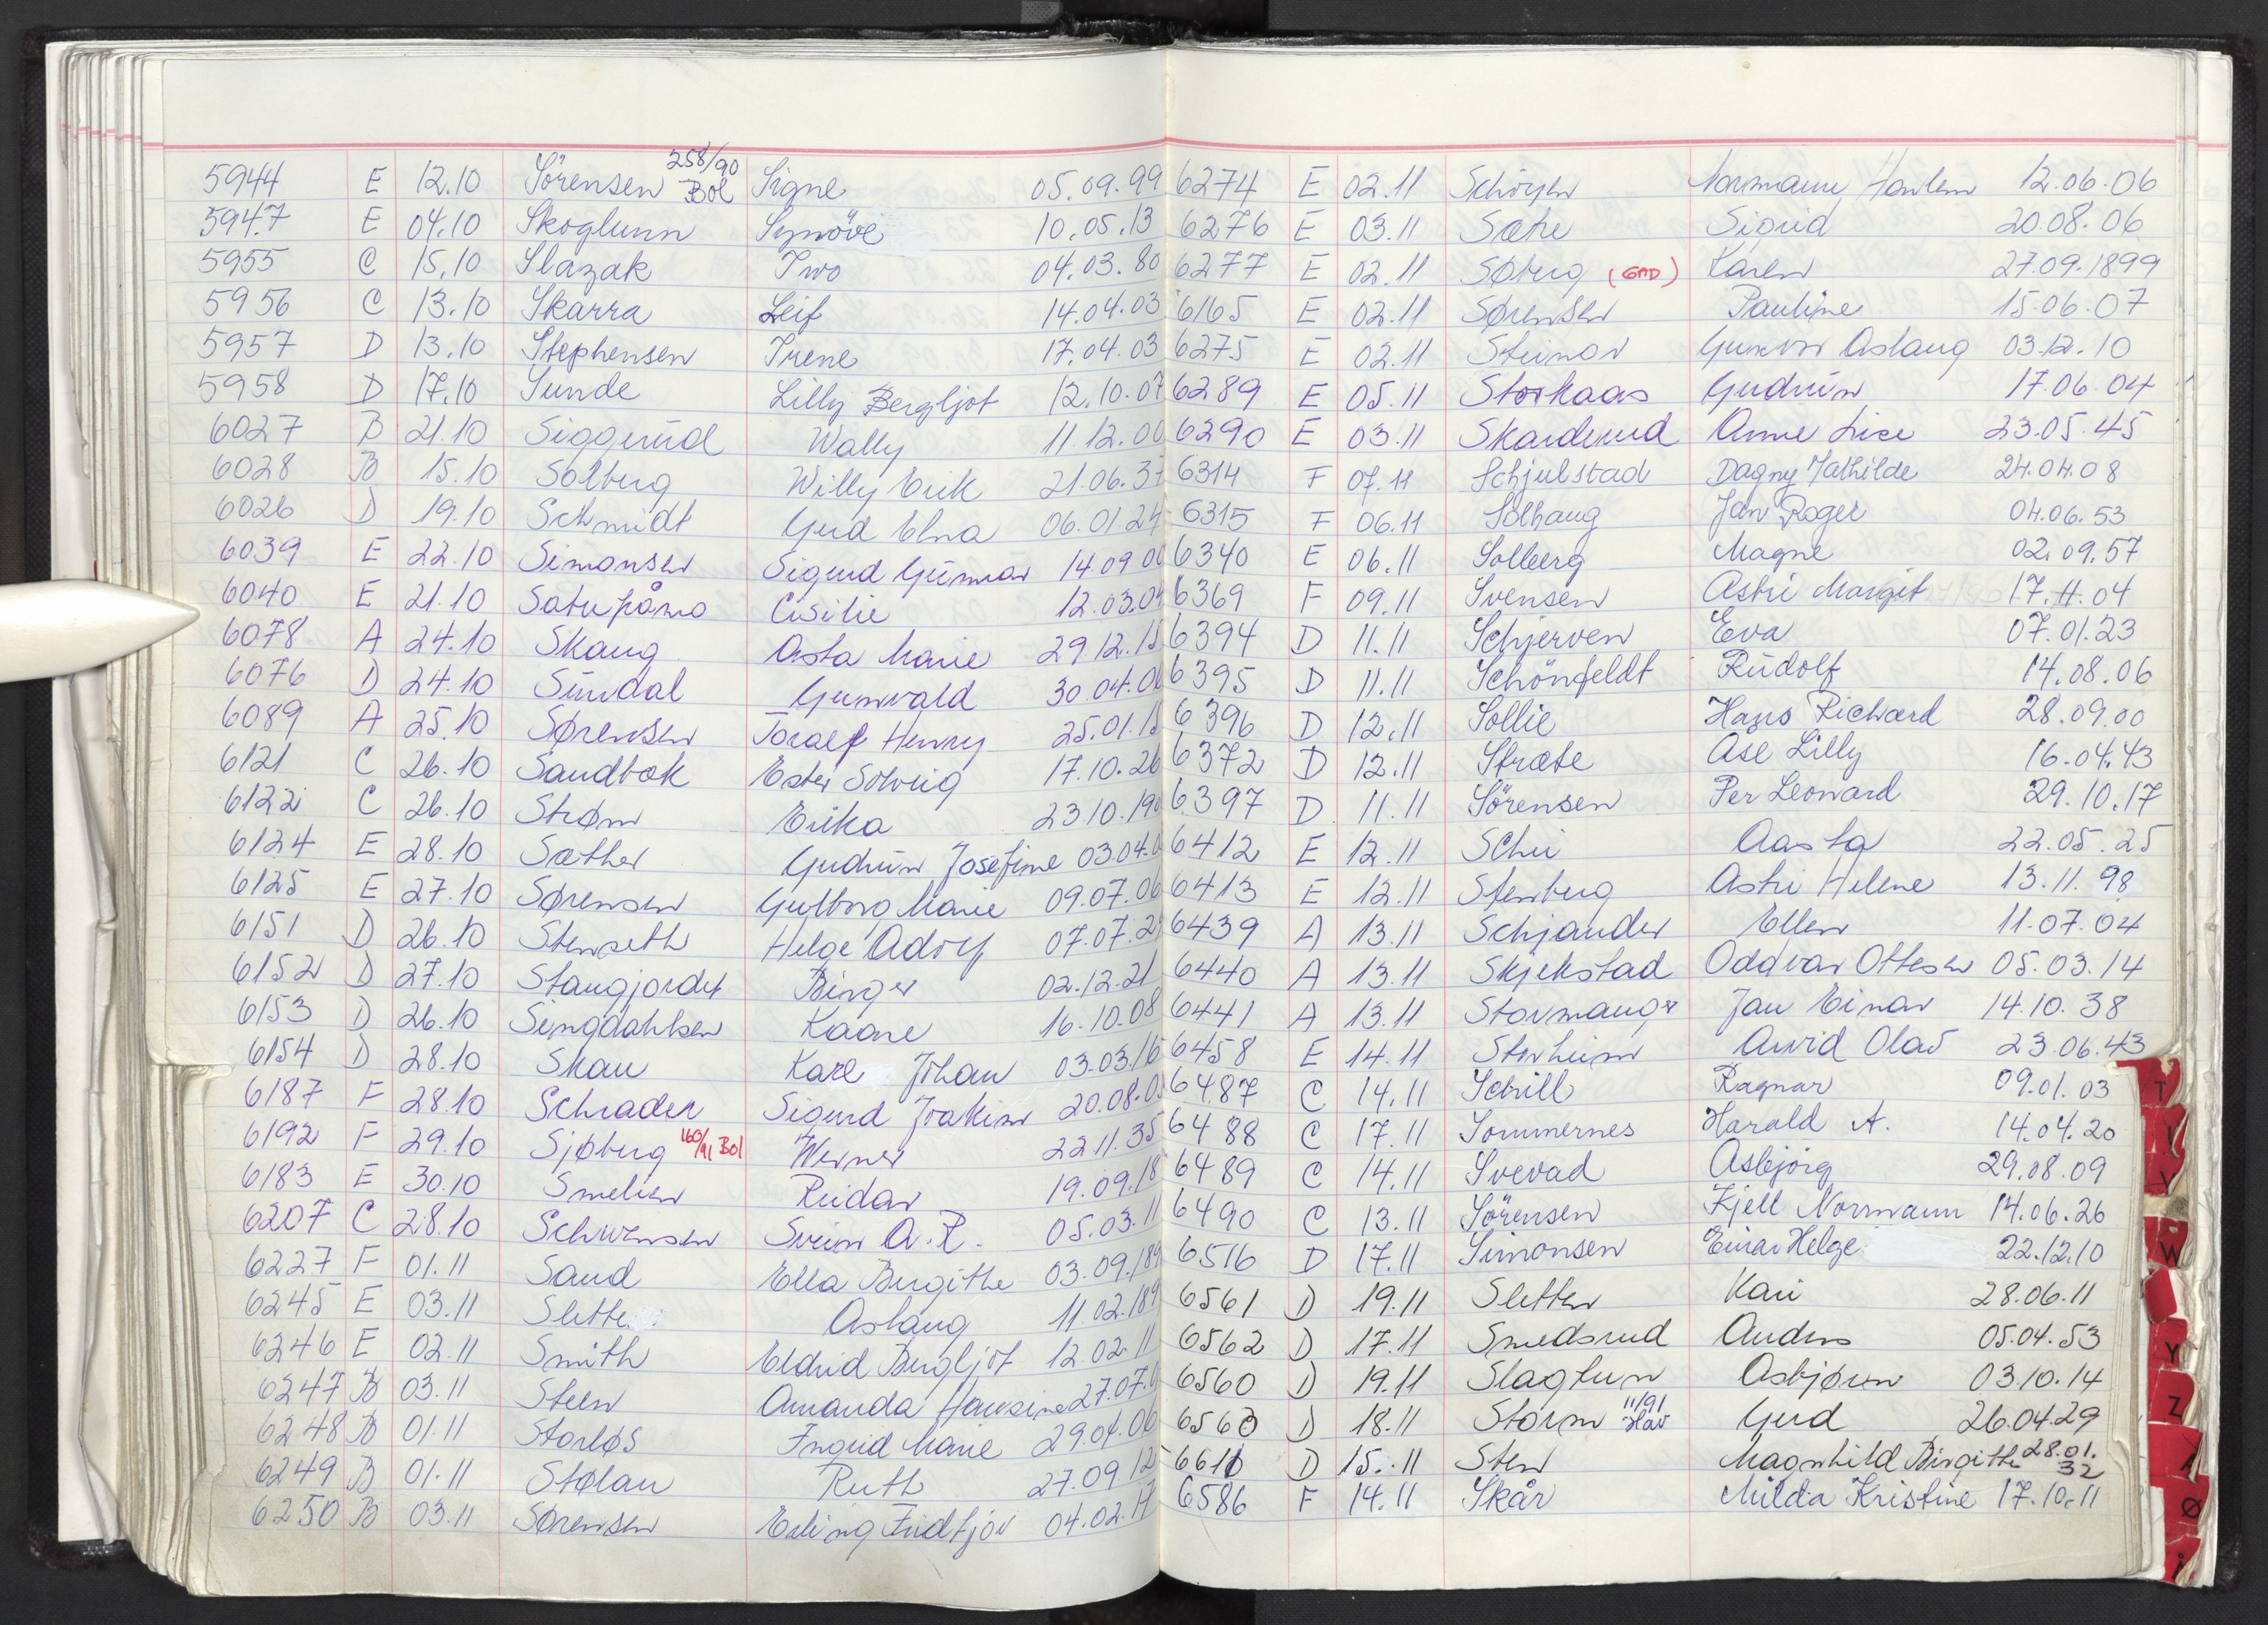 5944 E 12.10 Sörensen 258/90 Bol Signe 05.09.99
5947 E 04.10 Skoglunn Synöve 10.05.13
5955 C 15.10 Slazak Iwo 04.03.80
5956 C 13.10 Skarra Leif 14.04.03
5957 D 13.10 Stephensen Irene 17.04.03
5958 D 17.10 Sunde Lilly Bergljot 12.10.07
6027 B 21.10 Siggerud Wally 11.12.00
6028 B 15.10 Solberg Willy Erik 21.06.37
6026 D 19.10 Schmidt Gerd Elna 06.01.24
6039 E 22.10 Simonsen Sigurd Gunnar 14.09.00
6040 E 21.10 Cisilie 12.03.04
6078 A 24.10 Skaug Asta Marie 29.12.15
6076 D 24.10 Sundal Gunvald 30.04.
6089 A 25.10 Sørensen Toralf Henry 25.01.15
6121 C 26.10 Sandbæk Ester Solveig 17.10.26
6122 C 26.10 Strøm Erika 23.10.190
6124 E 28.10 Sæther Gudrun Josefine 03.04.
6125 E 27.10 Sørensen Gulborg Marie 09.07.06
6151 D 26.10 Stenseth Helge Adolf 07.07.2
6152 D 27.10 Stangjordet Birger 02.12.21
6153 D 26.10 Singdahlsen Kaare 16.10.08
6154 D 28.10 Skau Karl Johan 03.03.16
6187 F 28.10 Schrader Sigurd Joakim 20.08.0
6192 F 29.10 Sjøberg 160/91 Bol Werner 22.11.35
6183 E 30.10 Smehen Reidar 19.09.18
6207 C 28.10 Schwensen Svein A.R. 05.03.11
6227 F 01.11 Sand Ella Birgithe 03.09.189
6245 E 03.11 Slette Aslaug 11.02.189
6246 E 02.11 Smith Eldrid Bergljot 12.02.11
6247 B 03.11 Steen Amanda Hansine 27.07.0
6248 B 01.11 Storløs Ingrid Marie 29.04.06
6249 B 01.11 Stølan Ruth 27.09.12
6250 B 03.11 Sørensen Erling Fridtjov 04.02.17
6274 E 02.11 Schöyen Normann 12.06.06
6276 E 03.11 Sætre Sigrid 20.08.06
6277 E 02.11 Søberg (GAD) Karen 27.09.1899
6165 E 02.11 Sørensen Pauline 15.06.07
6275 E 02.11 Steinar Gunvor Aslaug 03.12.10
6289 E 05.11 Storhaas Gudrun 17.06.04
6290 E 03.11 Skarderud Anne Lise 23.05.45
6314 F 07.11 Schjulstad Dagny Mathilde 24.04.08
6315 F 06.11 Solhaug Jan Roger 04.06.53
6340 E 06.11 Solberg Magne 02.09.57
6369 F 09.11 Svensen Astri Margit 17.11.04
6394 D 11.11 Schjerven Eva 07.01.23
6395 D 11.11 Schönfeldt Rudolf 14.08.06
6396 D 12.11 Sollie Hans Richard 28.09.00
6372 D 12.11 Stræte Åse Lilly 16.04.43
6397 D 11.11 Sörensen Per Leonard 29.10.17
6412 E 12.11 Schei Aasta 22.05.25
6413 E 12.11 Stenberg Astri Helene 13.11.98
6439 A 13.11 Schjander Ellen 11.07.04
6440 A 13.11 Skjekstad Oddvar Ottesen 05.03.14
6441 A 13.11 Stormanger Jan Einar 14.10.38
6458 E 14.11 Storheim Arvid Olav 23.06.43
6487 C 14.11 Schill Ragnar 09.01.03
6488 C 17.11 Sommernes Harald A. 14.04.20
6489 C 14.11 Svevad Asbjörg 29.08.09
6490 C 13.11 Sörensen Kjell Normann 14.06.26
6516 D 17.11 Simonsen Einar Helge 22.12.10
6561 D 19.11 Sletten Kari 28.06.11
6562 D 17.11 Smedsrud Anders 05.04.53
6560 D 19.11 Slagtern Asbjørn 03.10.14
6563 D 18.11 Storm 11/91 Hav Gerd 26.04.29
6611 D 15.11 Sten Magnhild Birgithe 28.01.32
6586 F 14.11 Skår Milda Kristine 17.10.11
T
V
W
Y
Z
Ø